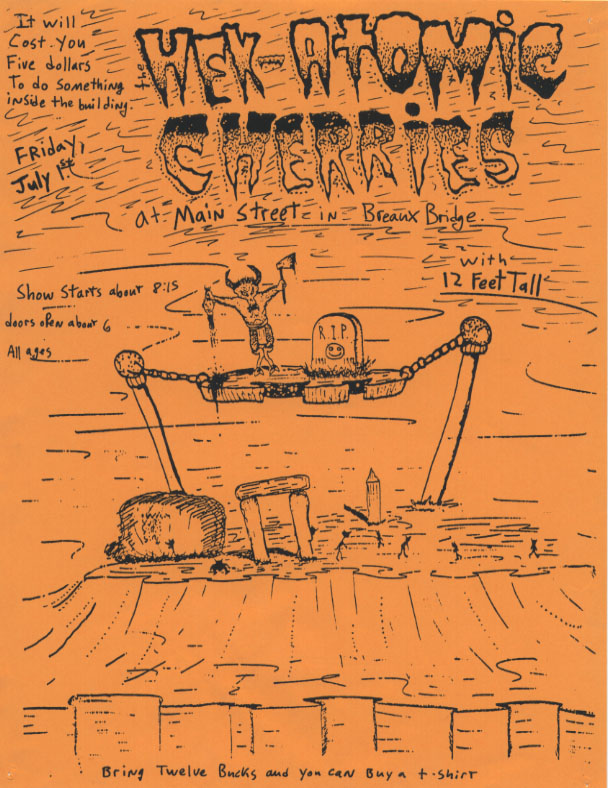 It will
Cost You
Five dollars
To do something
inside the building
the HEX-ATOMIC
CHERRIES
Friday,
July 1st
at Main Street in Breaux Bridge.
with
12 Feet Tall
Show Starts about 8:15
doors open about 6
All ages
R.I.P.
Bring Twelve Bucks and you can Buy a t-shirt